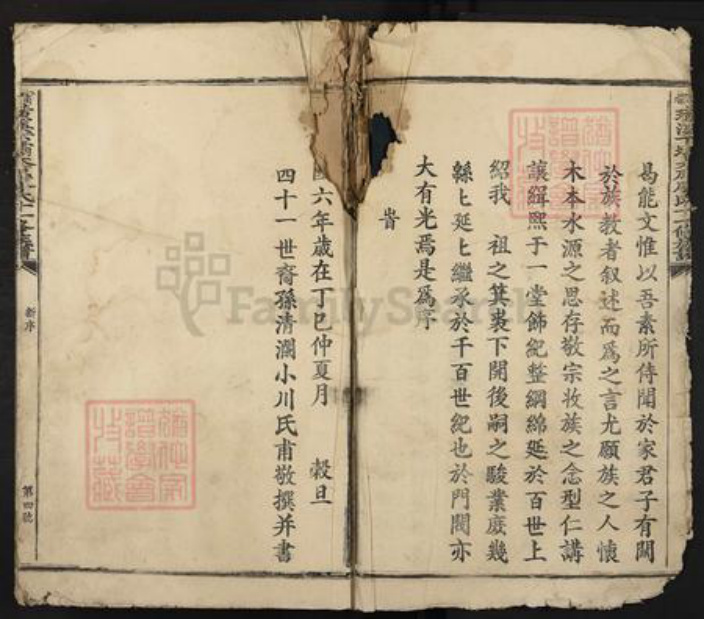 曷能文惟以吾素所侍聞於家君子有關
於族教者叙述而爲之言尤願族之人懷
木本水源之思存敬宗收族之念型仁講
讓緝熙于一堂飾紀整綱綿延於百世上
紹我 祖之箕裘下開後嗣之駿業庶幾
緜匕延匕繼承於千百世紀也於門閭亦
大有光焉是爲序
旹
國六年歲在丁巳仲夏月 穀旦
四十一世裔孫清瀾小川氏甫敬撰并書
新序
第四號
FamilySearch